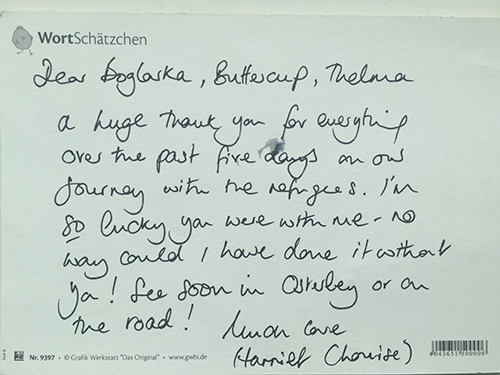 WortSchätzchen
Dear Boglarka, Buttercup, Thelma
a huge thank you for everything
over the past five days on our
journey with the refugees. I'm
so lucky you were with me - no
way could I have done it without
ya! See soon in Osterbey or on
the road! Much love
(Harriet Chouise)
Nr. 9397 • © Grafik Werkstatt "Das Original" • www.gwbi.de
4043651500006